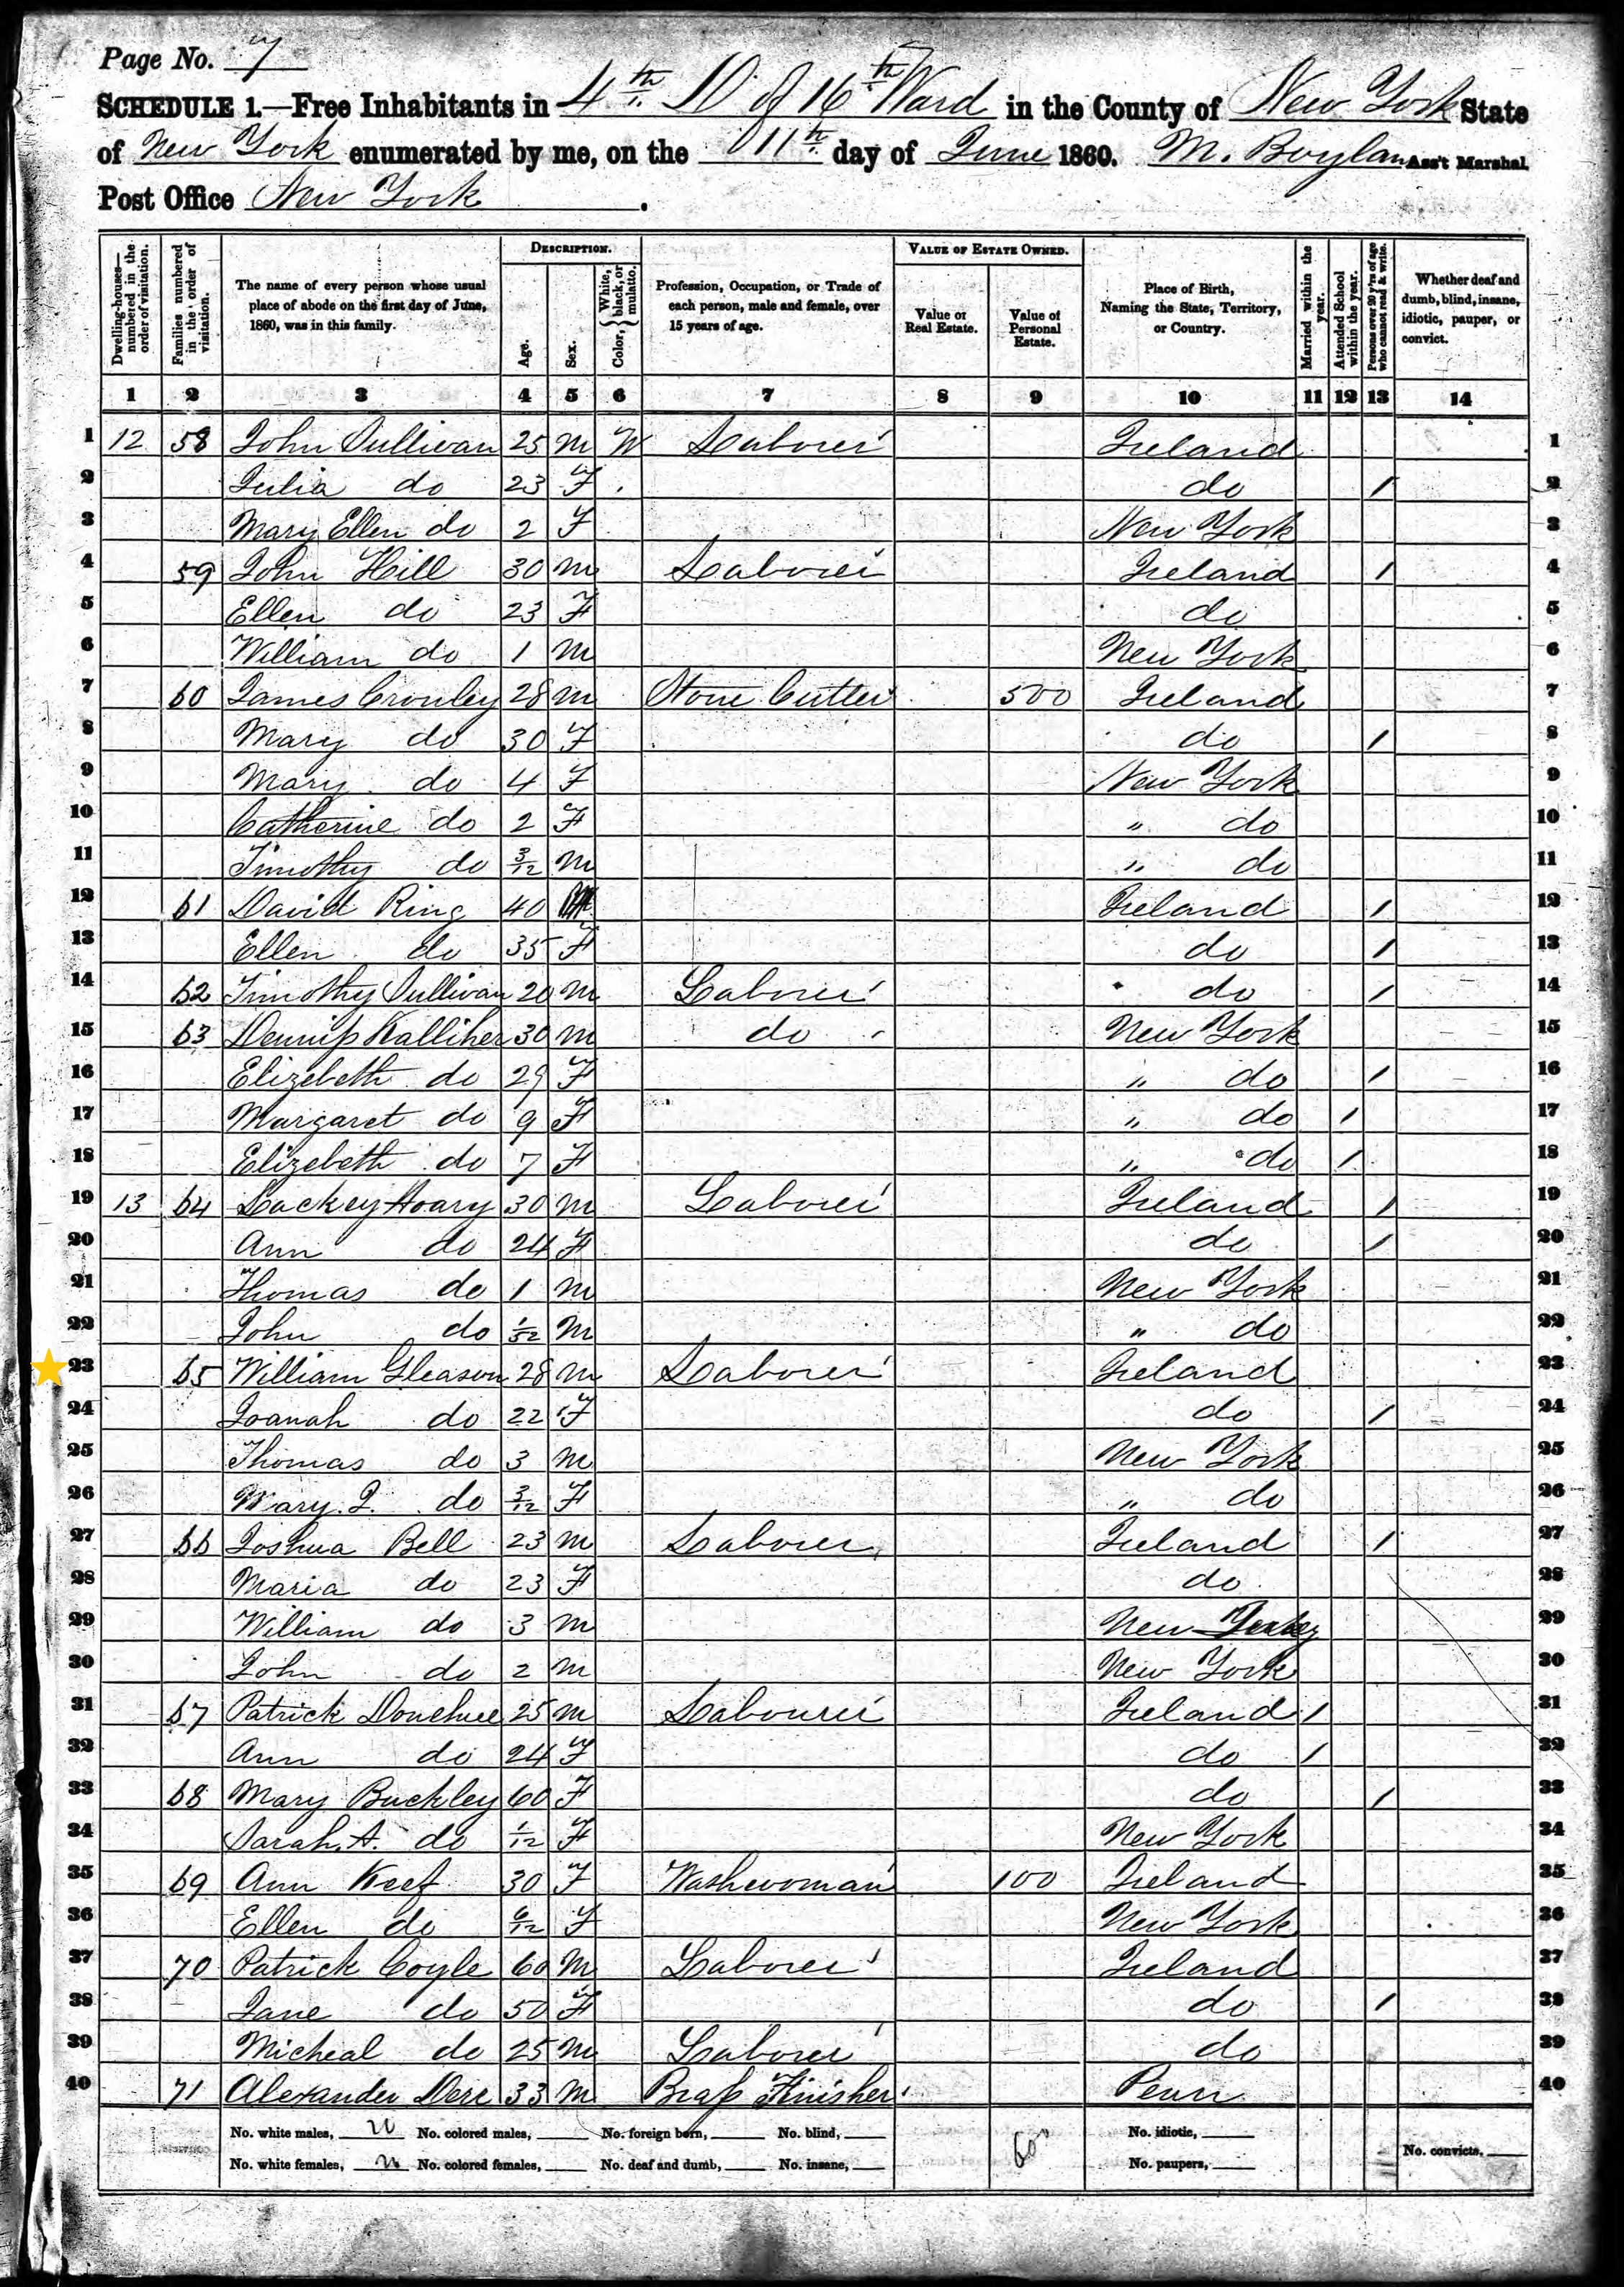 Page No. 7
SCHEDULE 1.—Free Inhabitants in 4th D of 16th Ward in the County of New York State
of New York enumerated by me, on the 11th day of June 1860. M. Boylan Ass't Marshal.
Post Office New York.
Dwelling-houses—numbered in the order of visitation.
Families numbered in the order of visitation.
The name of every person whose usual place of abode on the first day of June, 1860, was in this family.
DESCRIPTION.
Age.
Sex.
Color, { White, black, or mulatto.
Profession, Occupation, or Trade of each person, male and female, over 15 years of age.
VALUE OF ESTATE OWNED.
Value of Real Estate.
Value of Personal Estate.
Place of Birth, Naming the State, Territory, or Country.
Married within the year.
Attended School within the year.
Persons over 20 y'rs of age who cannot read & write.
Whether deaf and dumb, blind, insane, idiotic, pauper, or convict.
1 2 3 4 5 6 7 8 9 10 11 12 13 14
1 12 58 John Sullivan 25 M W Laborer Ireland 1
2 Julia do 23 F do / 2
3 Mary Ellen do 2 F New York 3
4 59 John Hill 30 M Laborer Ireland / 4
5 Ellen do 23 F do 5
6 William do 1 M New York 6
7 60 James Cronley 28 M Stone Cutter 500 Ireland 7
8 Mary do 30 F do / 8
9 Mary do 4 F New York 9
10 Catherine do 2 F " do 10
11 Timothy do 3/12 M " do 11
12 61 David Ring 40 M Ireland / 12
13 Ellen do 35 F do / 13
14 62 Timothy Sullivan 20 M Laborer do / 14
15 63 Dennis Kalliher 30 M do New York 15
16 Elizebeth do 29 F " do / 16
17 Margaret do 9 F " do / 17
18 Elizebeth do 7 F " do / 18
19 13 64 Lackey Hoary 30 M Laborer Ireland / 19
20 Ann do 24 F do / 20
21 Thomas do 1 M New York 21
22 John do M " do 22
23 65 William Gleason 28 M Laborer Ireland 23
24 Joanah do 22 F do / 24
25 Thomas do 3 M New York 25
26 Mary J. do 3/12 F " do 26
27 66 Joshua Bell 23 M Laborer Ireland / 27
28 Maria do 23 F do 28
29 William do 3 M New Jersey 29
30 John do 2 M New York 30
31 67 Patrick Donehue 25 M Labourer Ireland / 31
32 Ann do 24 F do / 32
33 68 Mary Buckley 60 F do / 33
34 Sarah A. do 1/12 F New York 34
35 69 Ann Keef 30 F Washwoman 100 Ireland 35
36 Ellen do 6/12 F New York 36
37 70 Patrick Coyle 60 M Laborer Ireland 37
38 Jane do 50 F do / 38
39 Micheal do 25 M Laborer do 39
40 71 Alexander Derr 33 M Brass Finisher Penn 40
No. white males, No. colored males, No. foreign born, No. blind, 600 No. idiotic,
No. white females, No. colored females, No. deaf and dumb, No. insane, No. paupers, No. convicts,